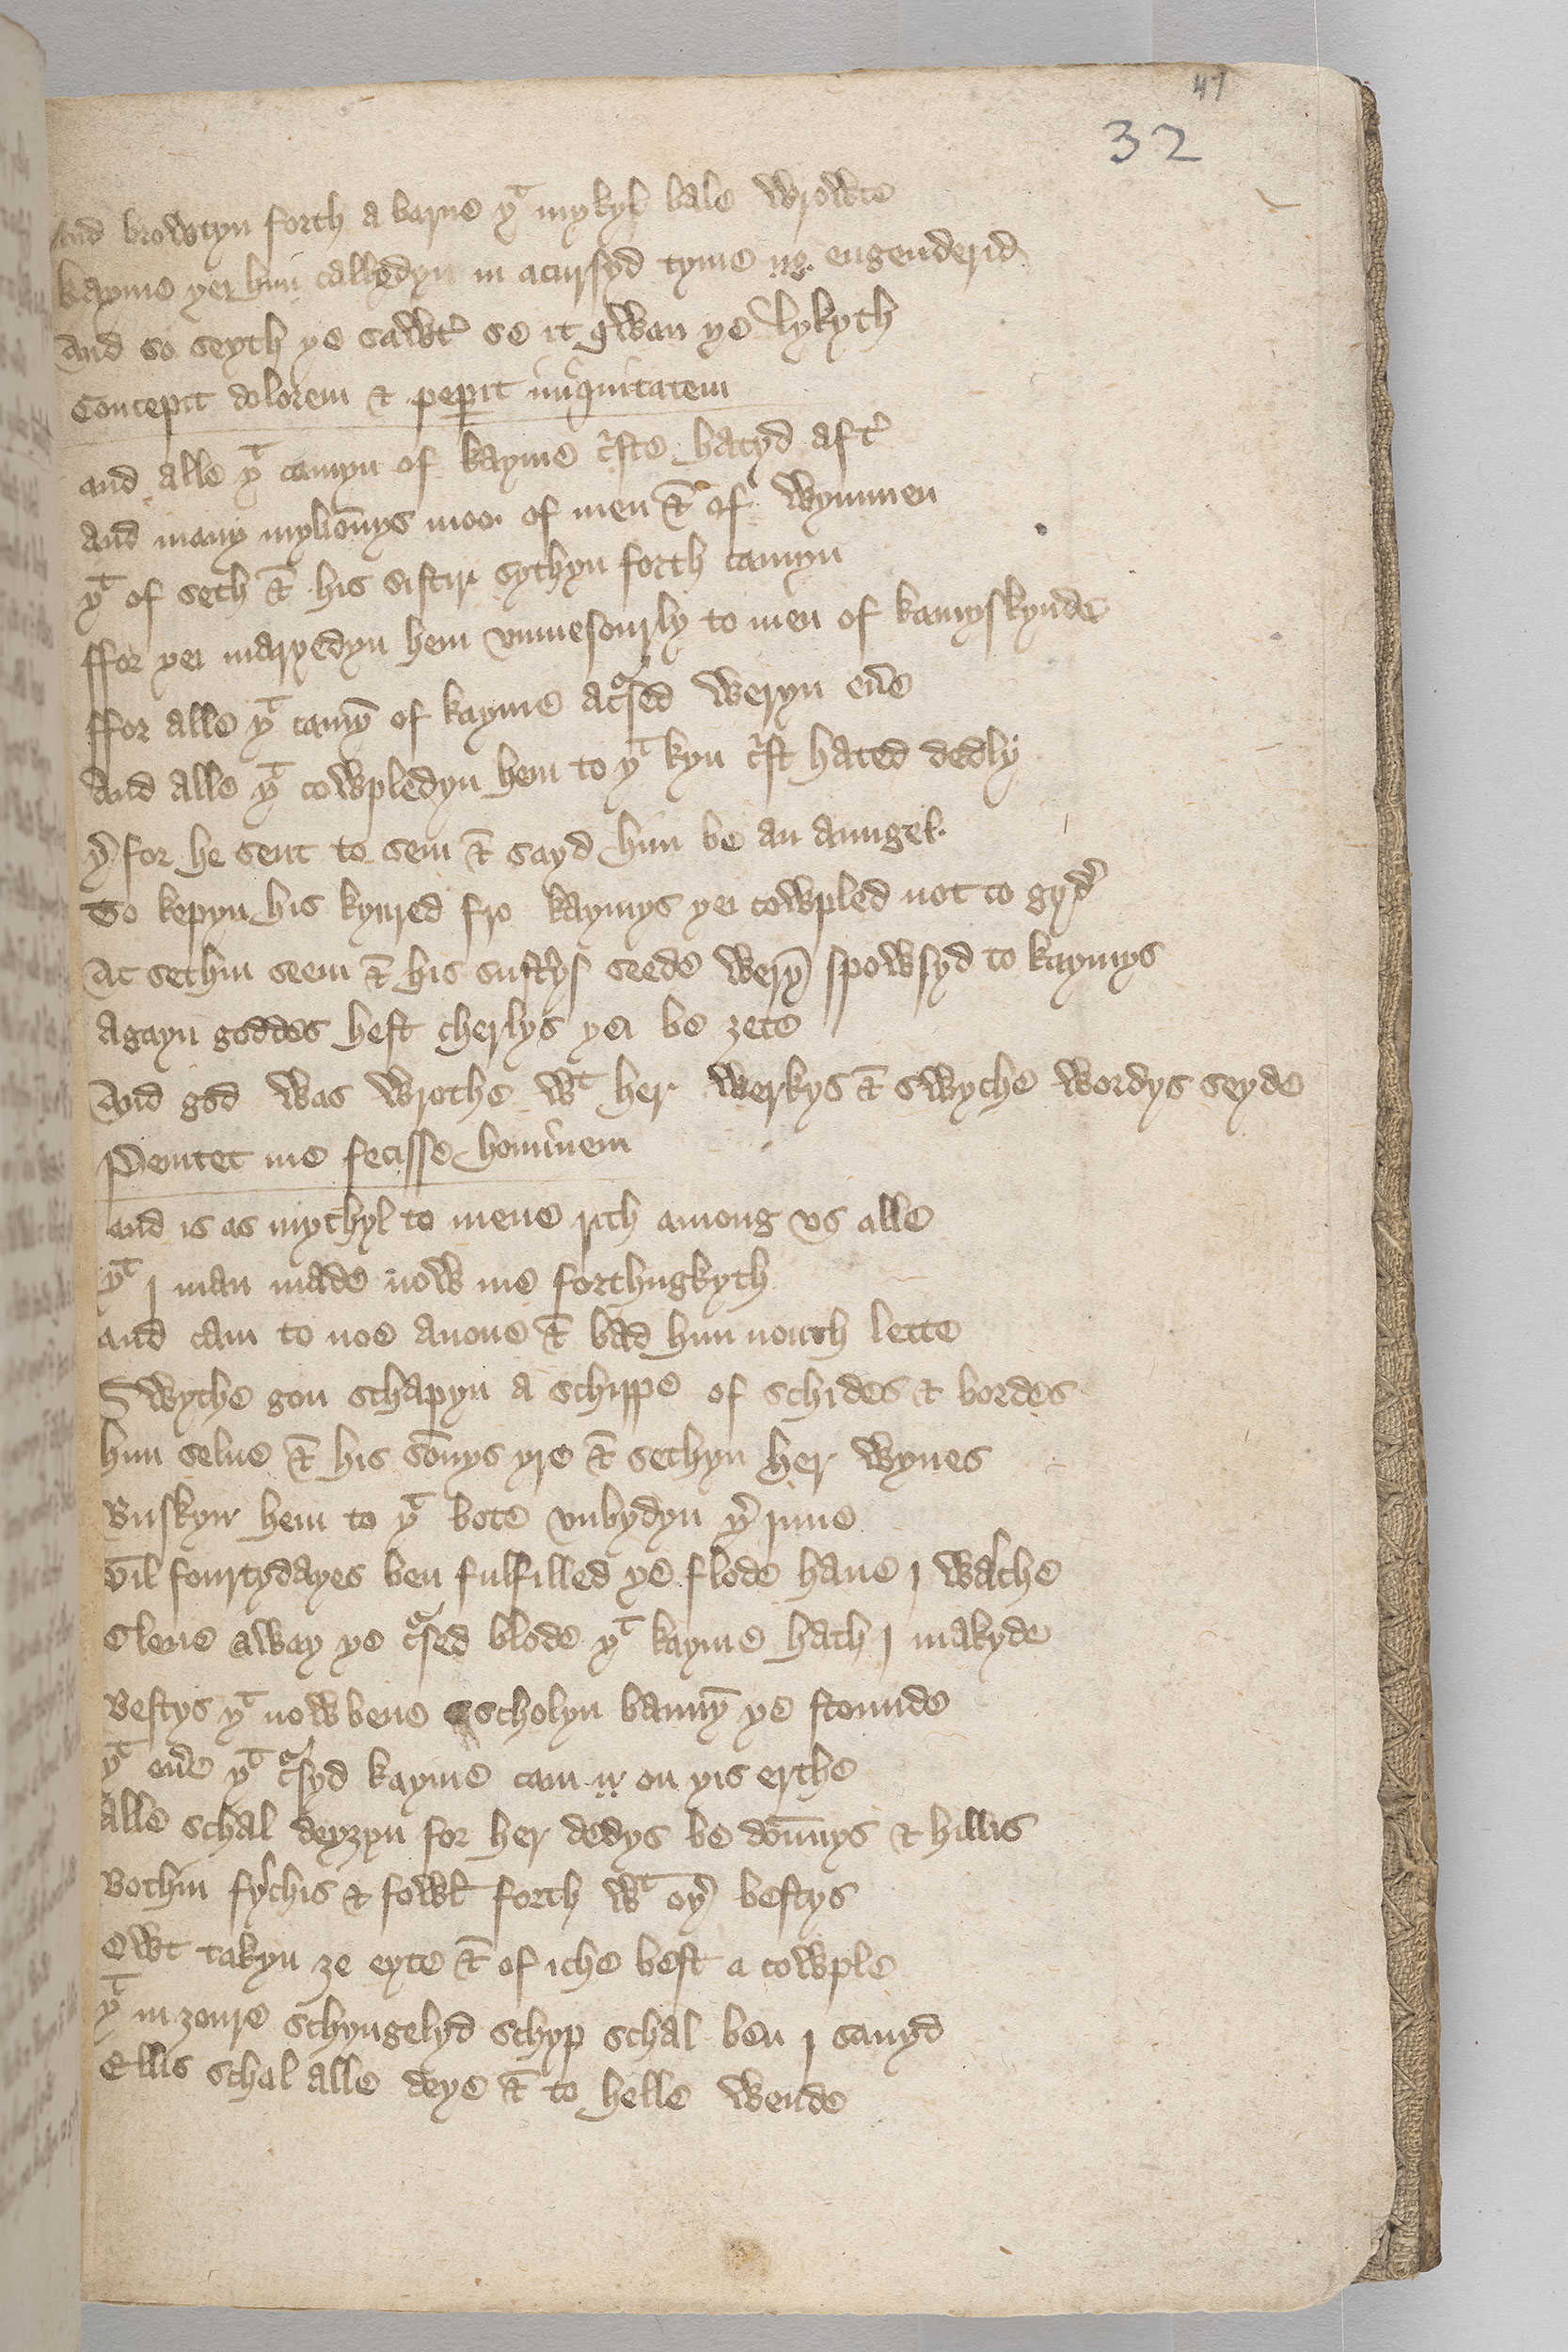 47
32
And browtyn forth a barne yᵗ mykyl bale wrowte
kayme yei him callydyn in acursyd tyme ne engenderid
And so seyth ye sawtʳ se it qwan ye lykyth
Concepit dolorem & peperit iniquitatem
and alle yᵗ camyn of kayme cʳste hatyd aftʳ
And many mylionys moo of men & of wymmen
yᵗ of seth & his sistir sythyn forth camyn
ffor yei maryedyn hem vnmesourly to men of kamyskynde
ffor alle yᵗ camȳ of kayme acᵘsed weryn eue
And alle yᵗ cowpledyn hem to yᵗ kyn cʳst hated dedly
yʳfor he sent to sem & sayd him be an aungel
To kepyn his kynred fro kaymys yei cowpled not to gydʳ
At sethin seem & his sustʳys seede werȳ spowsyd to kaymys
Agayn goddes hest cherlys yei be zete
And god was wrothe wᵗ her werkys & swyche wordys seyde
Penitet me fecisse hominem
and is as mychyl to mene ich among vs alle
yᵗ I man made now me forthngkyth
and cam to noe anone & bad him nouth lette
Swythe gon schapyn a schippe of schides & bordes
him selue & his sonys yre & sethyn her wyues
Buskyn hem to yᵗ bote vnbydyn yʳ inne
Til fourty dayes ben fulfilled ye flode haue I walche
Clene away ye cᵘsed blode yᵗ kayme hath I makyde
Bestys yᵗ now bene scholyn bannȳ ye stounde
yᵗ eue yᵗ cᵘsyd kayme cam ir on yis erthe
Alle schal deyzyn for her dedys be dounys & hillis
Bothin fychis & fowl forth wᵗ oyʳ bestys
Owt takyn ze eyte & of iche best a cowple
yᵗ in zoure schyngelyd schyp schal ben I sauyd
Ellis schal alle deye & to helle wende